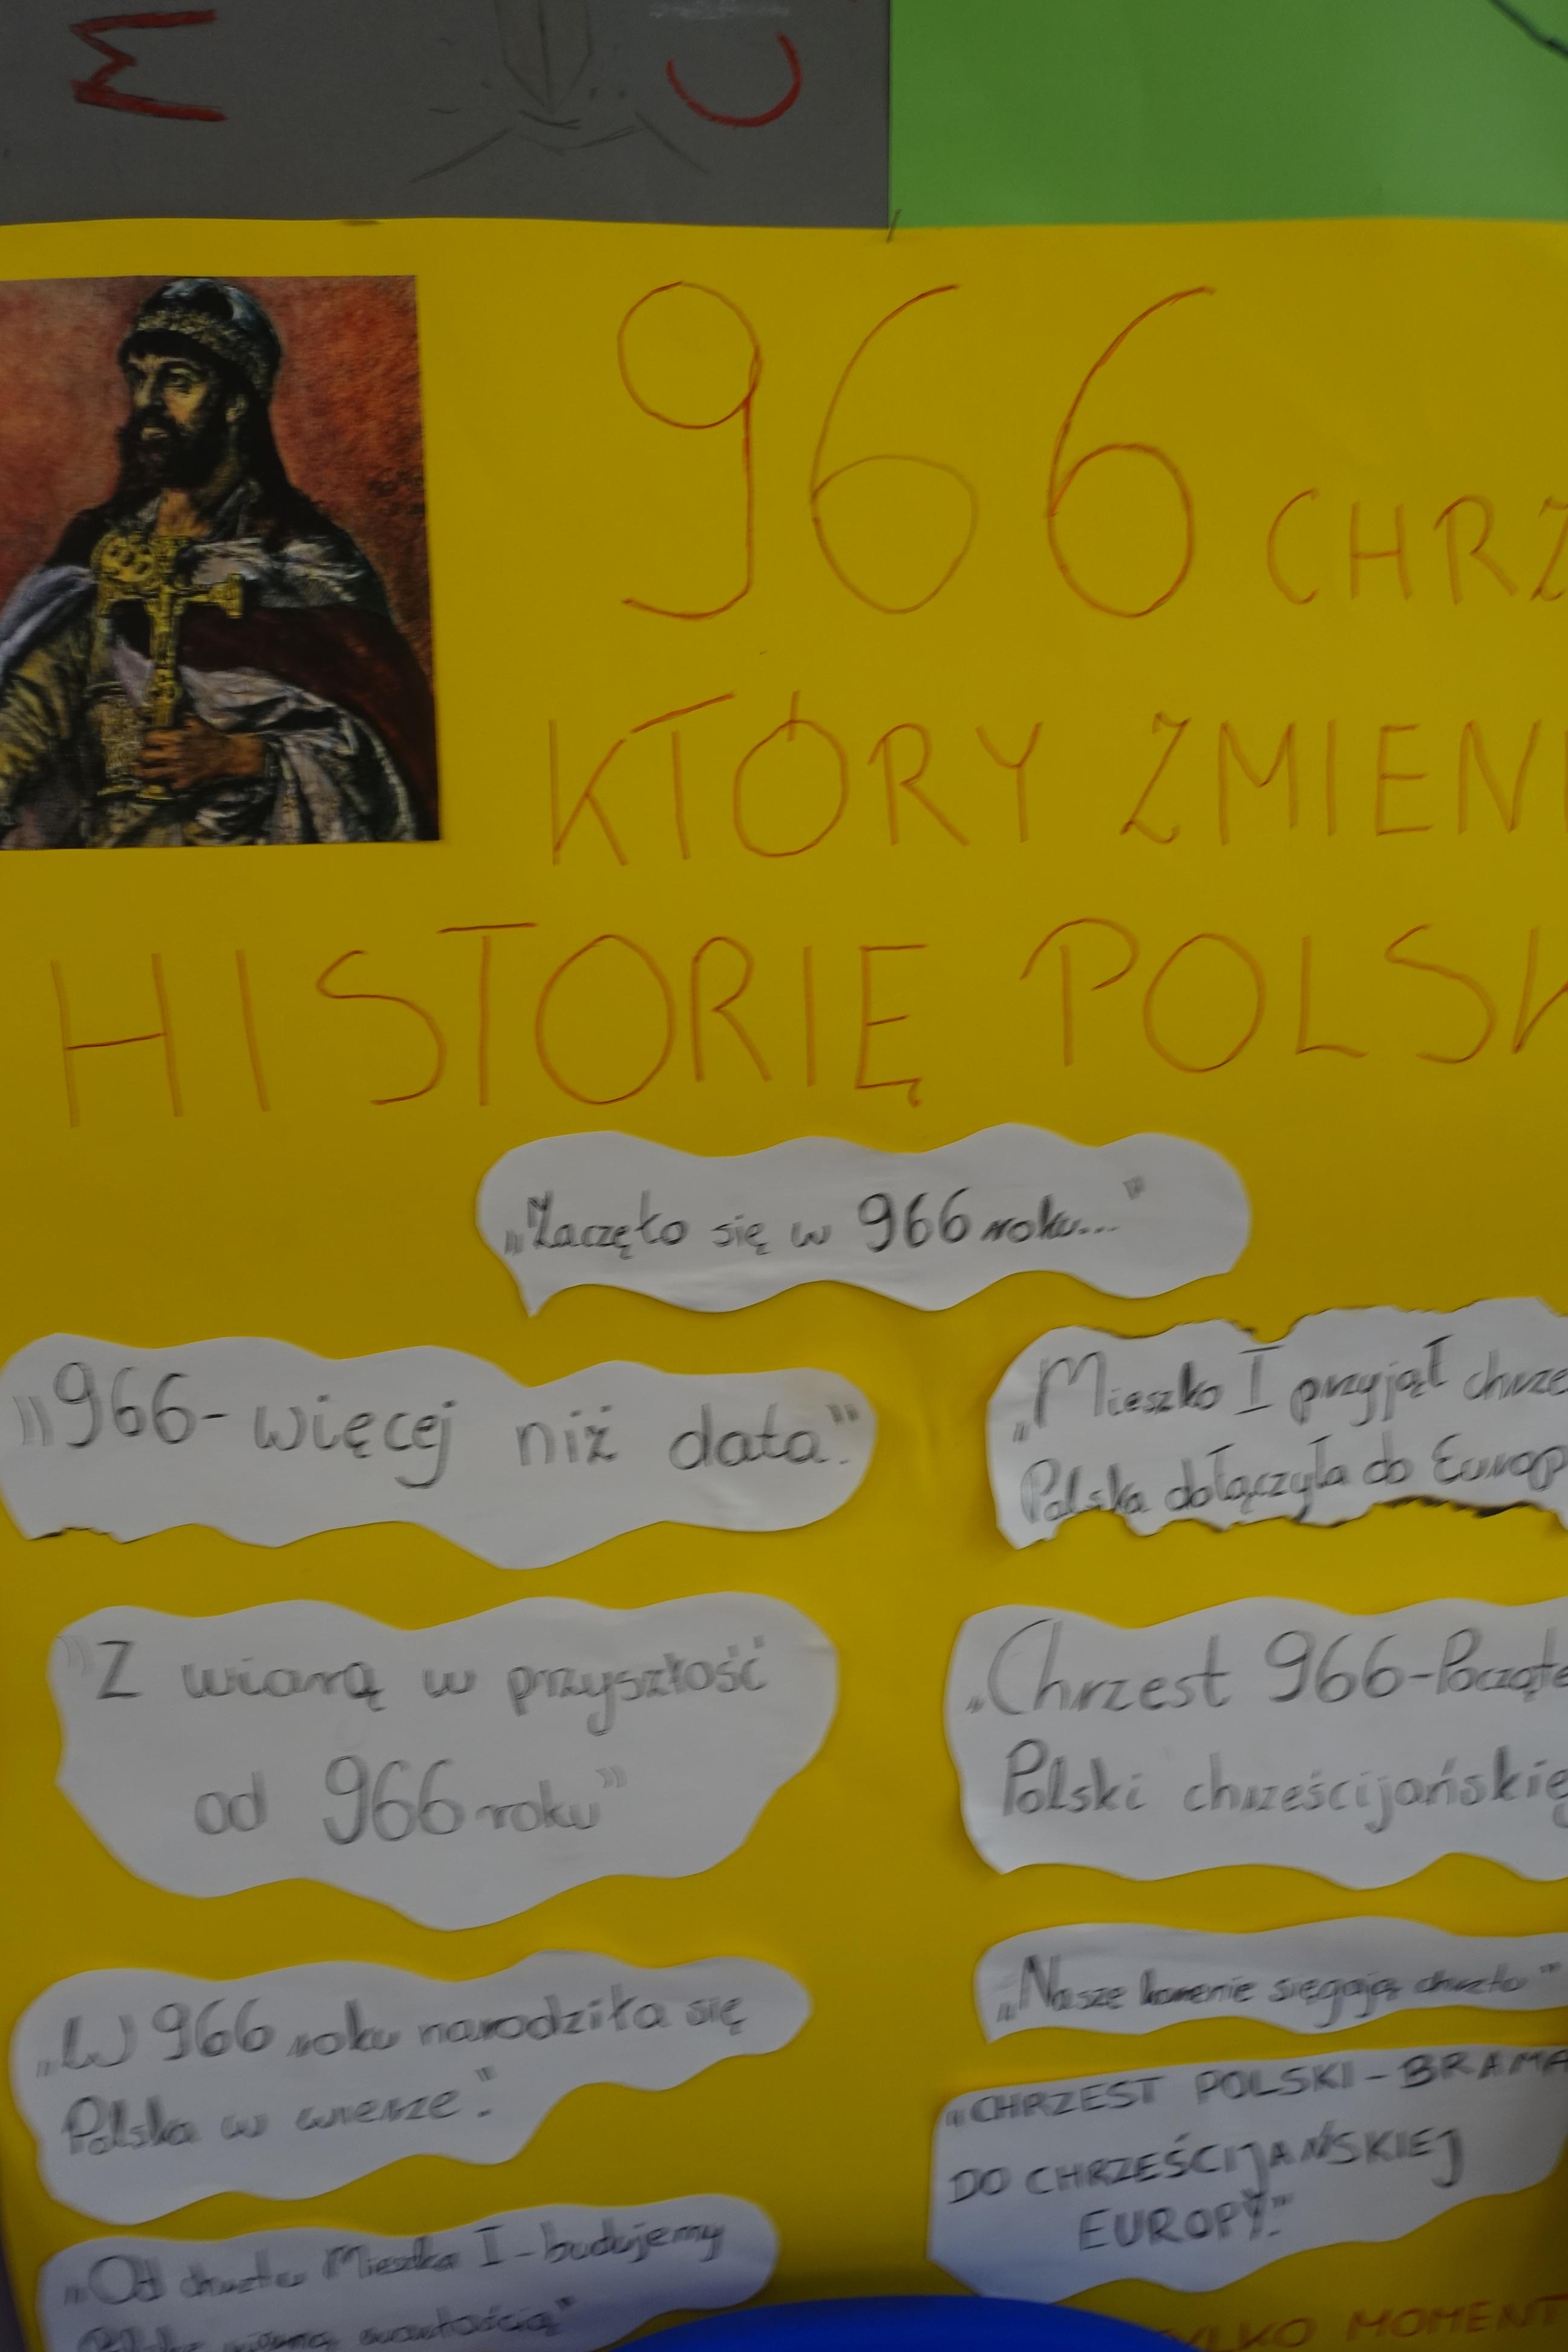 M C
966 CHRZ
KTÓRY ZMIENI
HISTORIĘ POLSK
„Zaczęło się w 966 roku..."
"966-więcej niż data."
„Mieszko I przyjął chrze
Polska dołączyła do Europ
"Z wiarą w przyszłość
od 966 roku"
„Chrzest 966-Począte
Polski chrześcijańskie
„W 966 roku narodziła się
Polska w wierze".
„Nasze korzenie sięgają chrztu"
„CHRZEST POLSKI-BRAMA
DO CHRZEŚCIJAŃSKIEJ
EUROPY."
„Od chrztu Mieszka I-budujemy
YLKO MOMENT